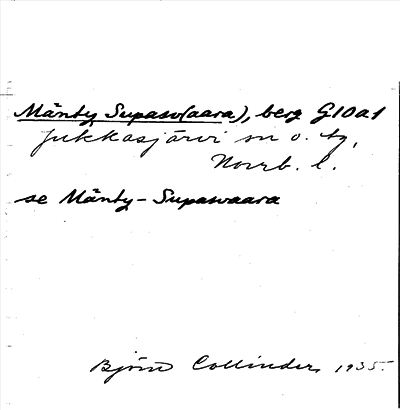 Mänty Supasv(aara), berg G10a1
Jukkasjärvi sn o. tg,
Norrb. l.
se Mänty-Supasvaara
Björn Collinder 1935.